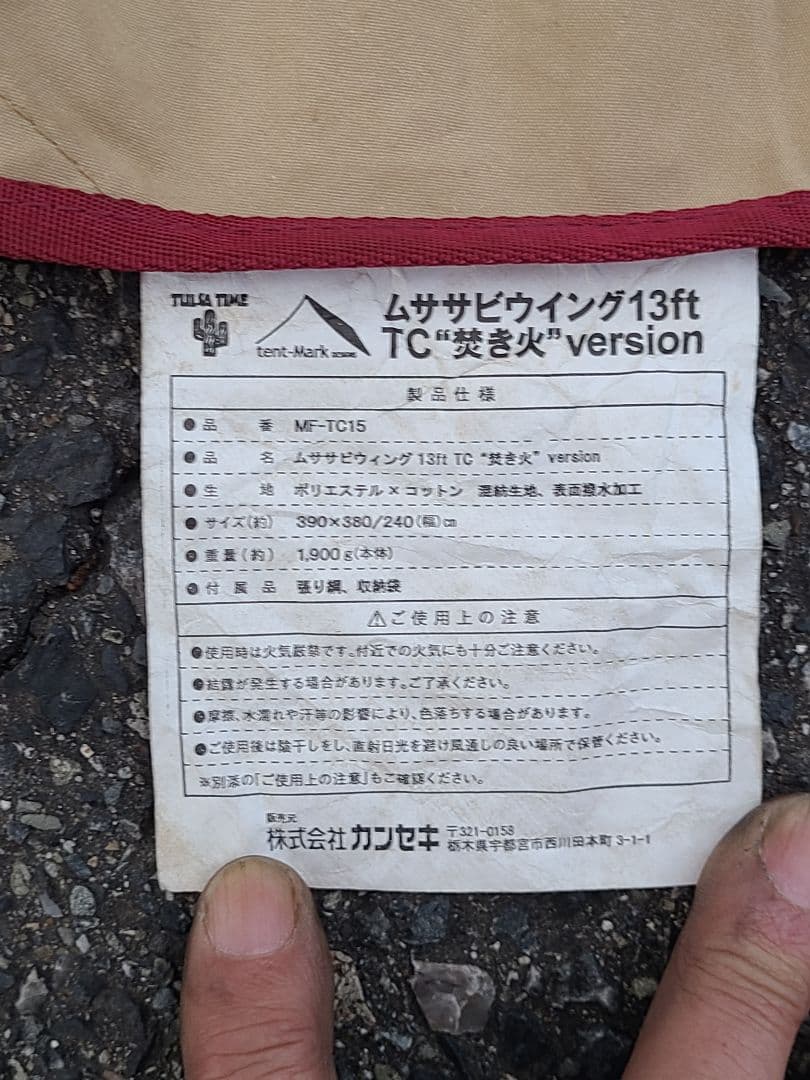 TULSA TIME
tent-Mark DESIGNS
ムササビウイング13ft
TC“焚き火”version
製品仕様
●品番 MF-TC15
●品名 ムササビウィング 13ft TC “焚き火” version
●生地 ポリエステル×コットン 混紡生地、表面撥水加工
●サイズ(約) 390×380/240(幅)㎝
●重量(約) 1,900g(本体)
●付属品 張り綱、収納袋
⚠ご使用上の注意
●使用時は火気厳禁です。付近での火気にも十分ご注意ください。
●結露が発生する場合があります。ご了承ください。
●摩擦、水濡れや汗等の影響により、色落ちする場合があります。
●ご使用後は陰干しをし、直射日光を避け風通しの良い場所で保管ください。
※別添の「ご使用上の注意」もご確認ください。
販売元
株式会社カンセキ 〒321-0158
栃木県宇都宮市西川田本町3-1-1